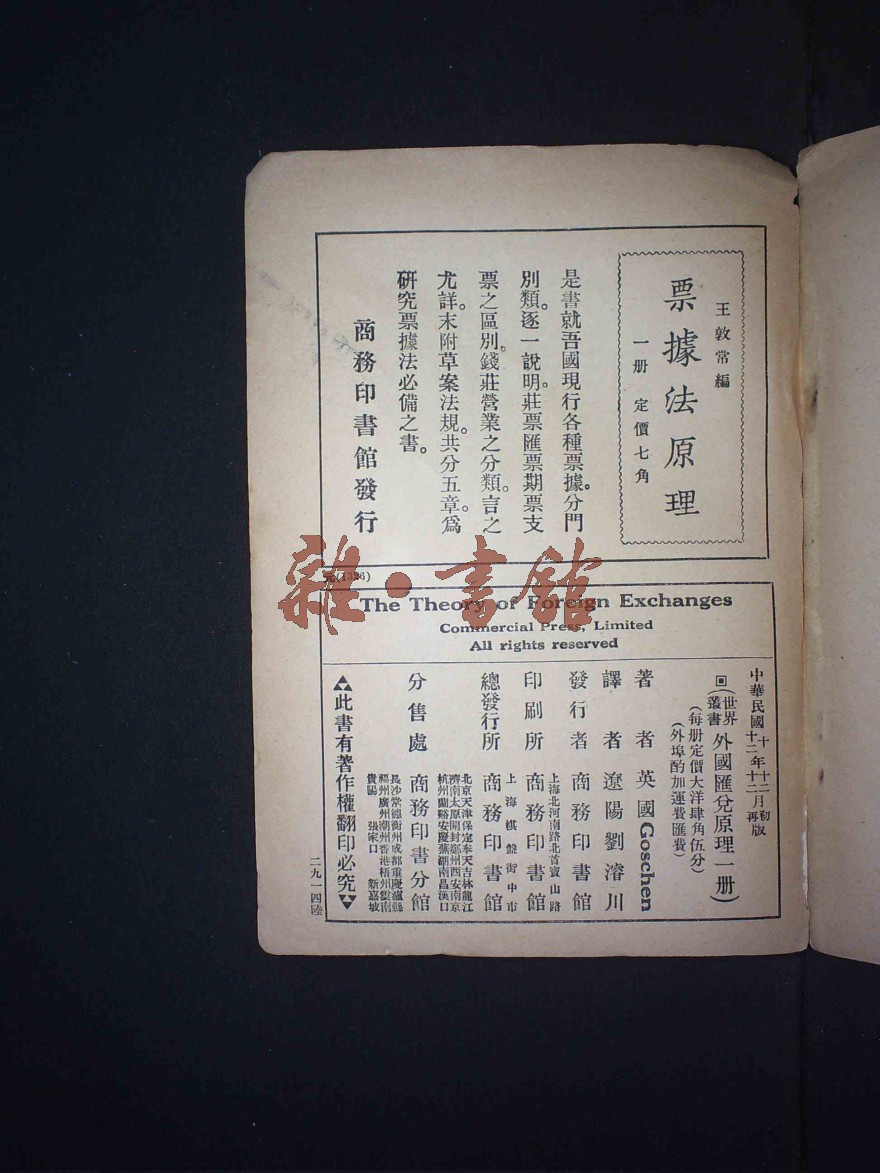 王敦常編
票據法原理
一册 定價七角
是書就吾國現行各種票據。分門
別類。逐一說明。莊票匯票期票支
票之區別。錢莊營業之分類。言之
尤詳。末附草案法規。共分五章。爲
研究票據法必備之書。
商務印書館發行
元(1326)
雜·書館
The Theory of Foreign Exchanges
Commercial Press, Limited
All rights reserved
中華民國十年十二月初版
十二年十二月再版
(世界叢書)外國匯兌原理一册)
(每册定價大洋肆角伍分)
(外埠酌加運費匯費)
著者 英國Goschen
譯者 遼陽劉濬川
發行者 商務印書館
上海北河南路北首寶山路
印刷所 商務印書館
上海棋盤街中市
總發行所 商務印書館
北京天津保定奉天吉林龍江
濟南太原開封鄭州西安南京
杭州蘭谿安慶蕪湖南昌漢口
分售處 商務印書分館
長沙常德衡州成都重慶瀘縣
福州廣州潮州香港梧州雲南
貴陽 張家口 新嘉坡
此書有著作權翻印必究
二九一四陸